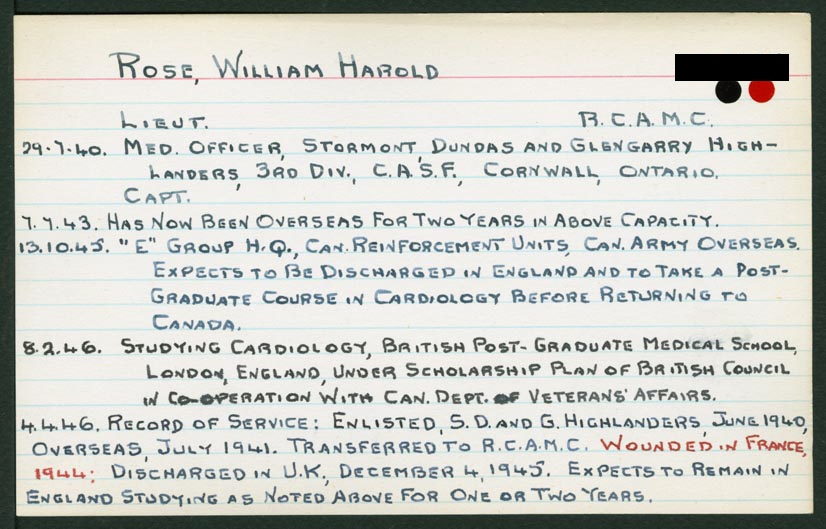 ROSE, WILLIAM HAROLD
LIEUT. R.C.A.M.C.
29.7.40. MED. OFFICER, STORMONT, DUNDAS AND GLENGARRY HIGH-
LANDERS, 3RD DIV., C.A.S.F., CORNWALL, ONTARIO.
CAPT.
7.7.43. HAS NOW BEEN OVERSEAS FOR TWO YEARS IN ABOVE CAPACITY.
13.10.45. "E" GROUP H.Q., CAN. REINFORCEMENT UNITS, CAN. ARMY OVERSEAS.
EXPECTS TO BE DISCHARGED IN ENGLAND AND TO TAKE A POST-
GRADUATE COURSE IN CARDIOLOGY BEFORE RETURNING TO
CANADA.
8.2.46. STUDYING CARDIOLOGY, BRITISH POST-GRADUATE MEDICAL SCHOOL,
LONDON, ENGLAND, UNDER SCHOLARSHIP PLAN OF BRITISH COUNCIL
IN CO-OPERATION WITH CAN. DEPT. OF VETERANS' AFFAIRS.
4.4.46. RECORD OF SERVICE: ENLISTED, S.D. AND G. HIGHLANDERS, JUNE 1940,
OVERSEAS, JULY 1941. TRANSFERRED TO R.C.A.M.C. WOUNDED IN FRANCE,
1944; DISCHARGED IN U.K., DECEMBER 4, 1945. EXPECTS TO REMAIN IN
ENGLAND STUDYING AS NOTED ABOVE FOR ONE OR TWO YEARS.